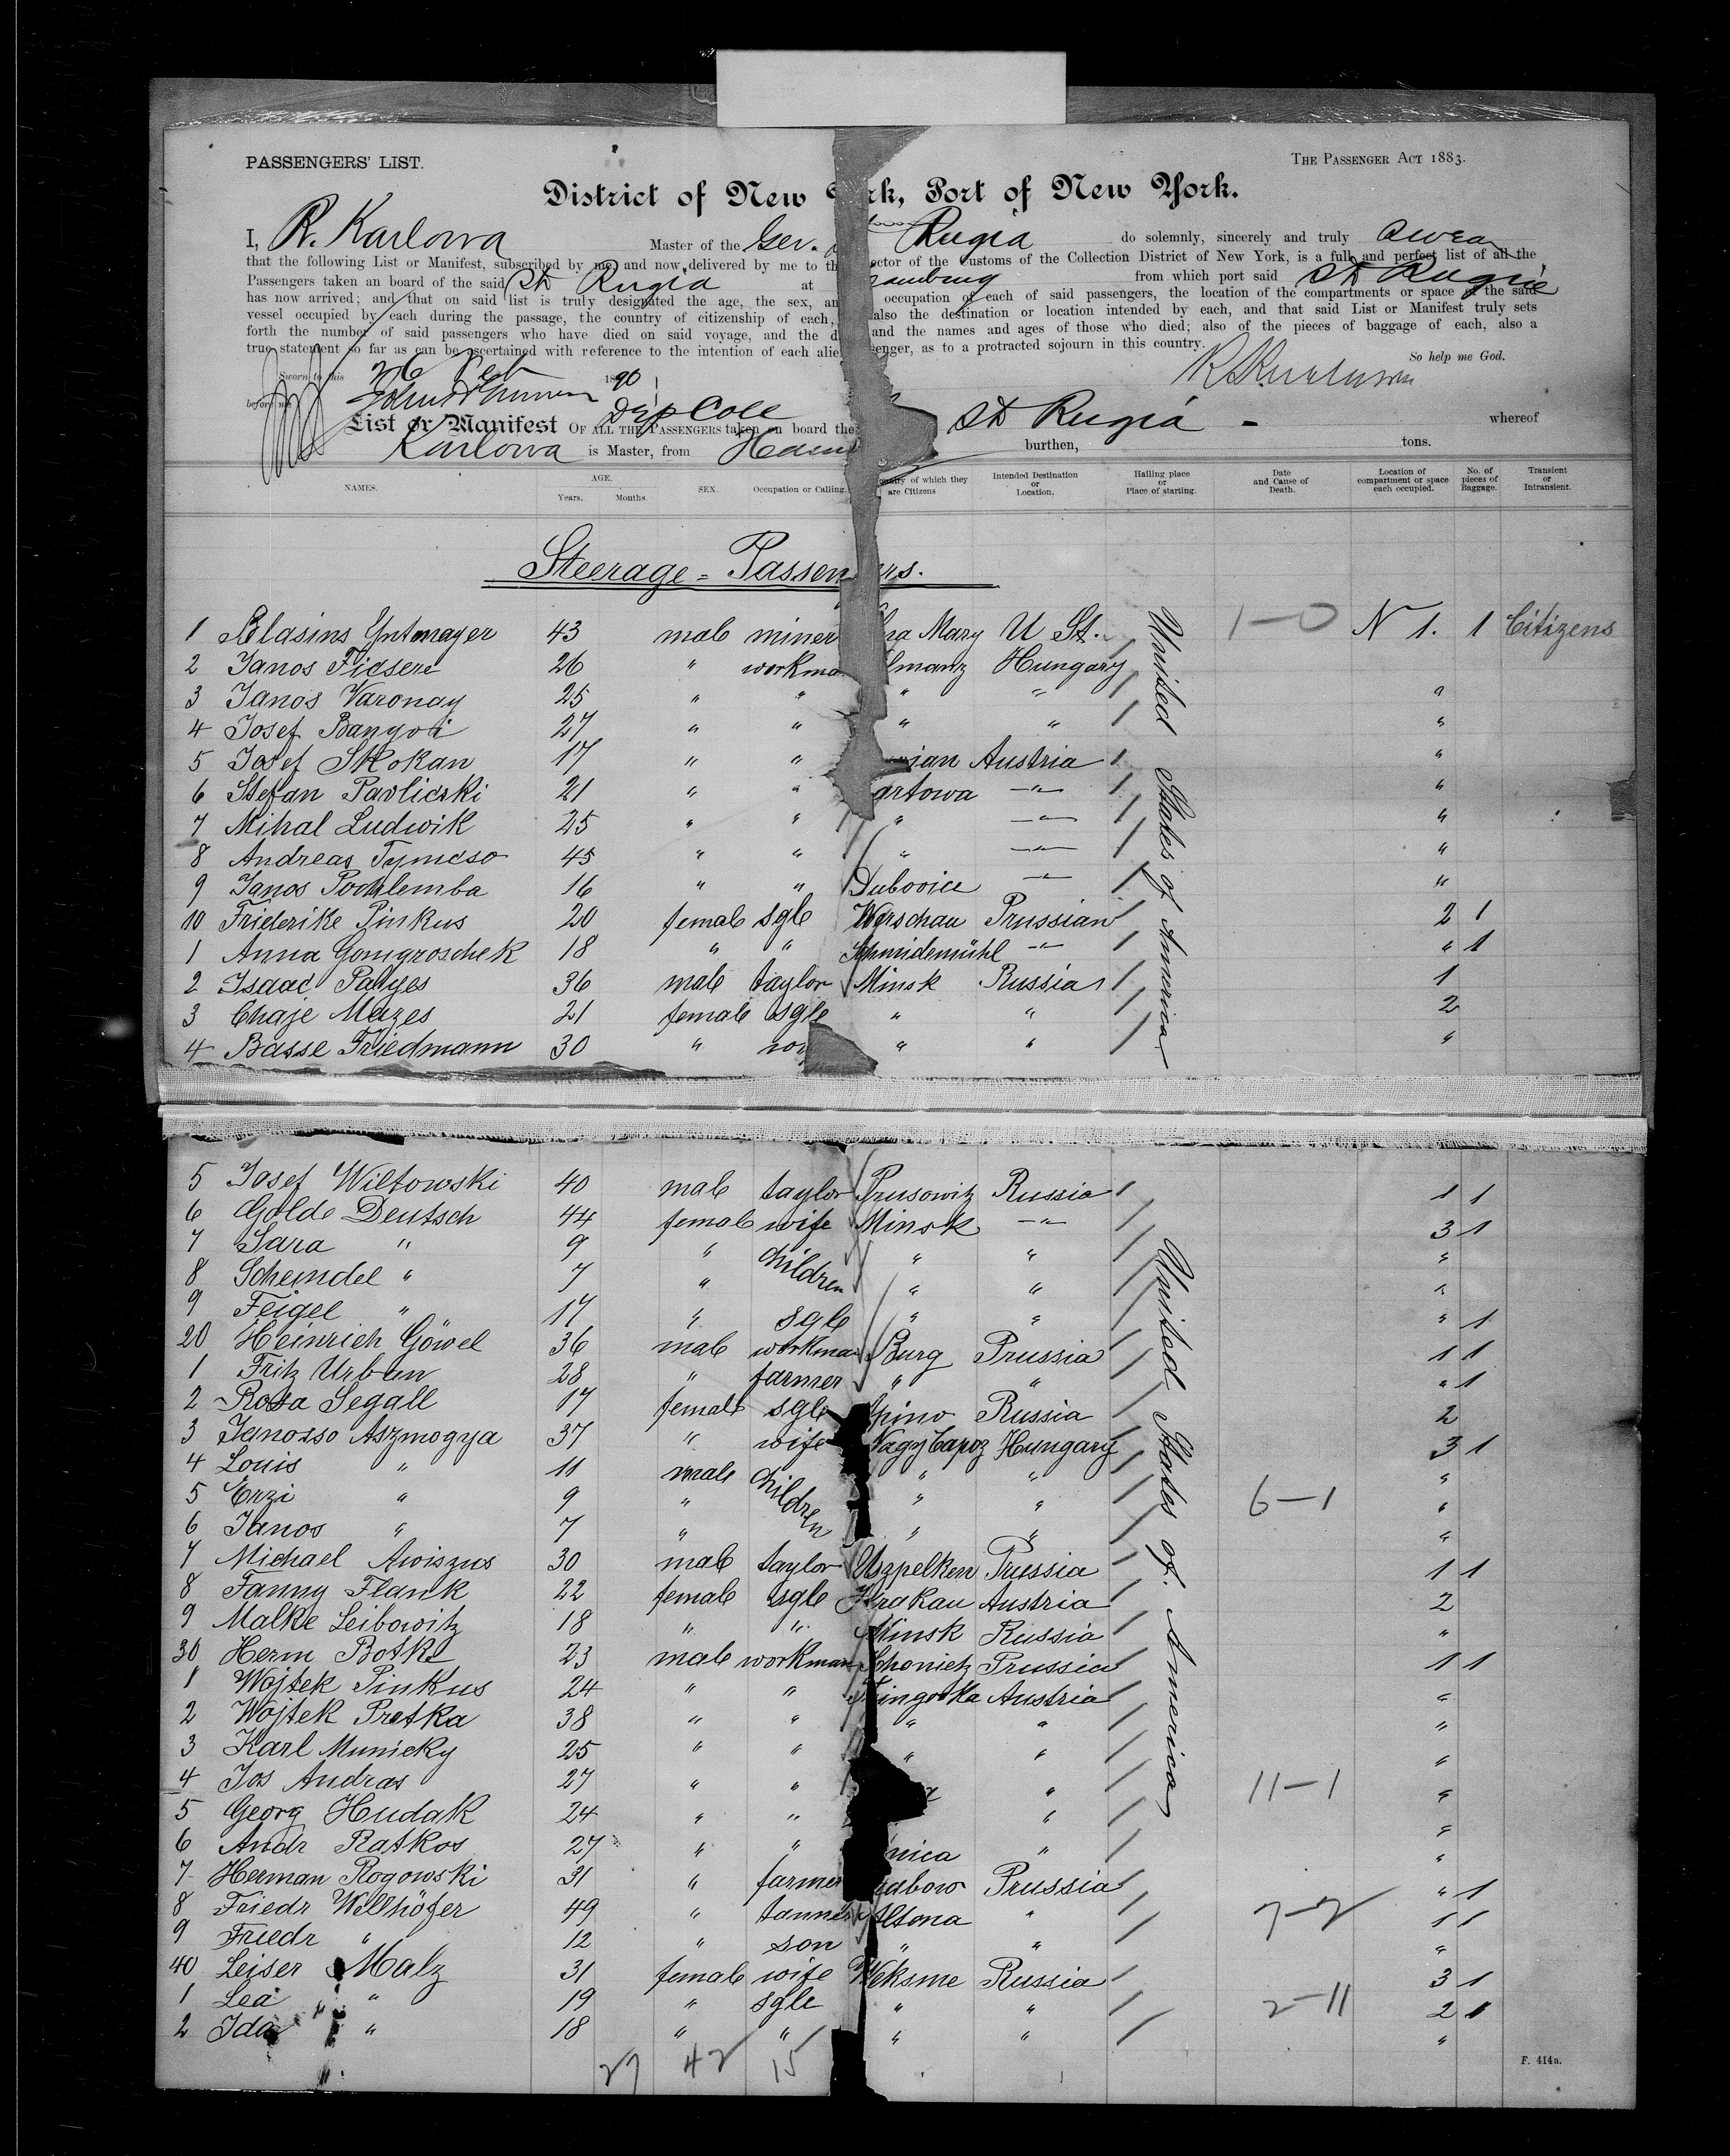 PASSENGERS' LIST.
THE PASSENGER ACT 1883.
District of New rk, Port of New York.
I, R. Karlowa Master of the Ger. Rugia do solemnly, sincerely and truly swear
that the following List or Manifest, subscribed by me, and now delivered by me to th ector of the Customs of the Collection District of New York, is a full and perfect list of all the
Passengers taken on board of the said St Rugia at amburg from which port said St Rugia
has now arrived; and that on said list is truly designated the age, the sex, an occupation of each of said passengers, the location of the compartments or space of the said
vessel occupied by each during the passage, the country of citizenship of each, also the destination or location intended by each, and that said List or Manifest truly sets
forth the number of said passengers who have died on said voyage, and the d and the names and ages of those who died; also of the pieces of baggage of each, also a
true statement so far as can be ascertained with reference to the intention of each alie senger, as to a protracted sojourn in this country.
So help me God.
R Karlowa
Sworn to this 26 Feb 1890
before me
Dep Coll
List or Manifest OF ALL THE PASSENGERS taken on board the St Rugia - whereof
Karlowa is Master, from Ham burthen, tons.
NAMES. AGE. Years. Months. SEX. Occupation or Calling. ountry of which they are Citizens Intended Destination or Location. Hailing place or Place of starting. Date and Cause of Death. Location of compartment or space each occupied. No. of pieces of Baggage. Transient or Intransient.
Steerage = Passen ers.
1 Blasins Yntmayer 43 male miner na Mary U St. 1-0 N 1. 1 Citizens
2 Janos Ficsere 26 " workma lmanz Hungary /
3 Janos Varonay 25 " " " " / "
4 Josef Banyoi 27 " " " " / "
5 Josef Skokan 17 " " ian Austria / "
6 Stefan Pavlicski 21 " " artowa -"- / "
7 Mihal Ludwik 25 " " " -"- / "
8 Andreas Tymcso 45 " " " -"- / "
9 Janos Pochlemba 16 " " Dubovice -"- / "
10 Friederike Pinkus 20 female sgle Warschau Prussian / 2 1
1 Anna Gomgroschek 18 " " Schmidemühl -"- / " 1
2 Isaac Palyes 36 male taylor Minsk Russia / 1
3 Chaje Mazes 21 female sgle " " / 2
4 Basse Friedmann 30 " " " / "
United States of America
5 Josef Wiltowski 40 male taylor Prusowitz Russia / 1 1
6 Golde Deutsch 44 female wife Minsk -"- / 3 1
7 Sara " 9 " children " " / "
8 Scheindel " 7 " " " / "
9 Feigel " 17 " sgle " " / " 1
20 Heinrich Göwel 36 male workman Burg Prussia / 1 1
1 Fritz Urban 28 " farmer " " / " 1
2 Rosa Segall 17 female sgle pino Russia / 2
3 Janosso Aszmogya 37 " wife Nagy Capoz Hungary / 3 1
4 Louis " 11 male children " " / "
5 Erzi " 9 " " " / 6-1 "
6 Janos " 7 " " " / "
7 Michael Awiszus 30 male taylor Uszpelken Prussia / 1 1
8 Fanny Flank 22 female sgle Krakau Austria / 2
9 Malke Leibowitz 18 " " Minsk Russia / "
30 Herm Botke 23 male workman chonietz Prussia / 1 1
1 Wojtek Pinkus 24 " " ingorka Austria / "
2 Wojtek Pretka 38 " " " " / "
3 Karl Municky 25 " " " " / "
4 Jos Andras 27 " " " / 11-1 "
5 Georg Hudak 24 " " " / "
6 Andr Ratkos 27 " " nica " / "
7 Herman Rogowski 31 " farmer abow Prussia / " 1
8 Friedr Wellhöfer 49 " tanner Altona " / 7-2 1 1
9 Friedr " 12 " son " " / "
40 Leiser Malz 31 female wife Weksme Russia / 3 1
1 Lea " 19 " sgle " " / 2-11 2 1
2 Ida " 18 " " " " / "
United States of America
27 42 15
F. 414a.